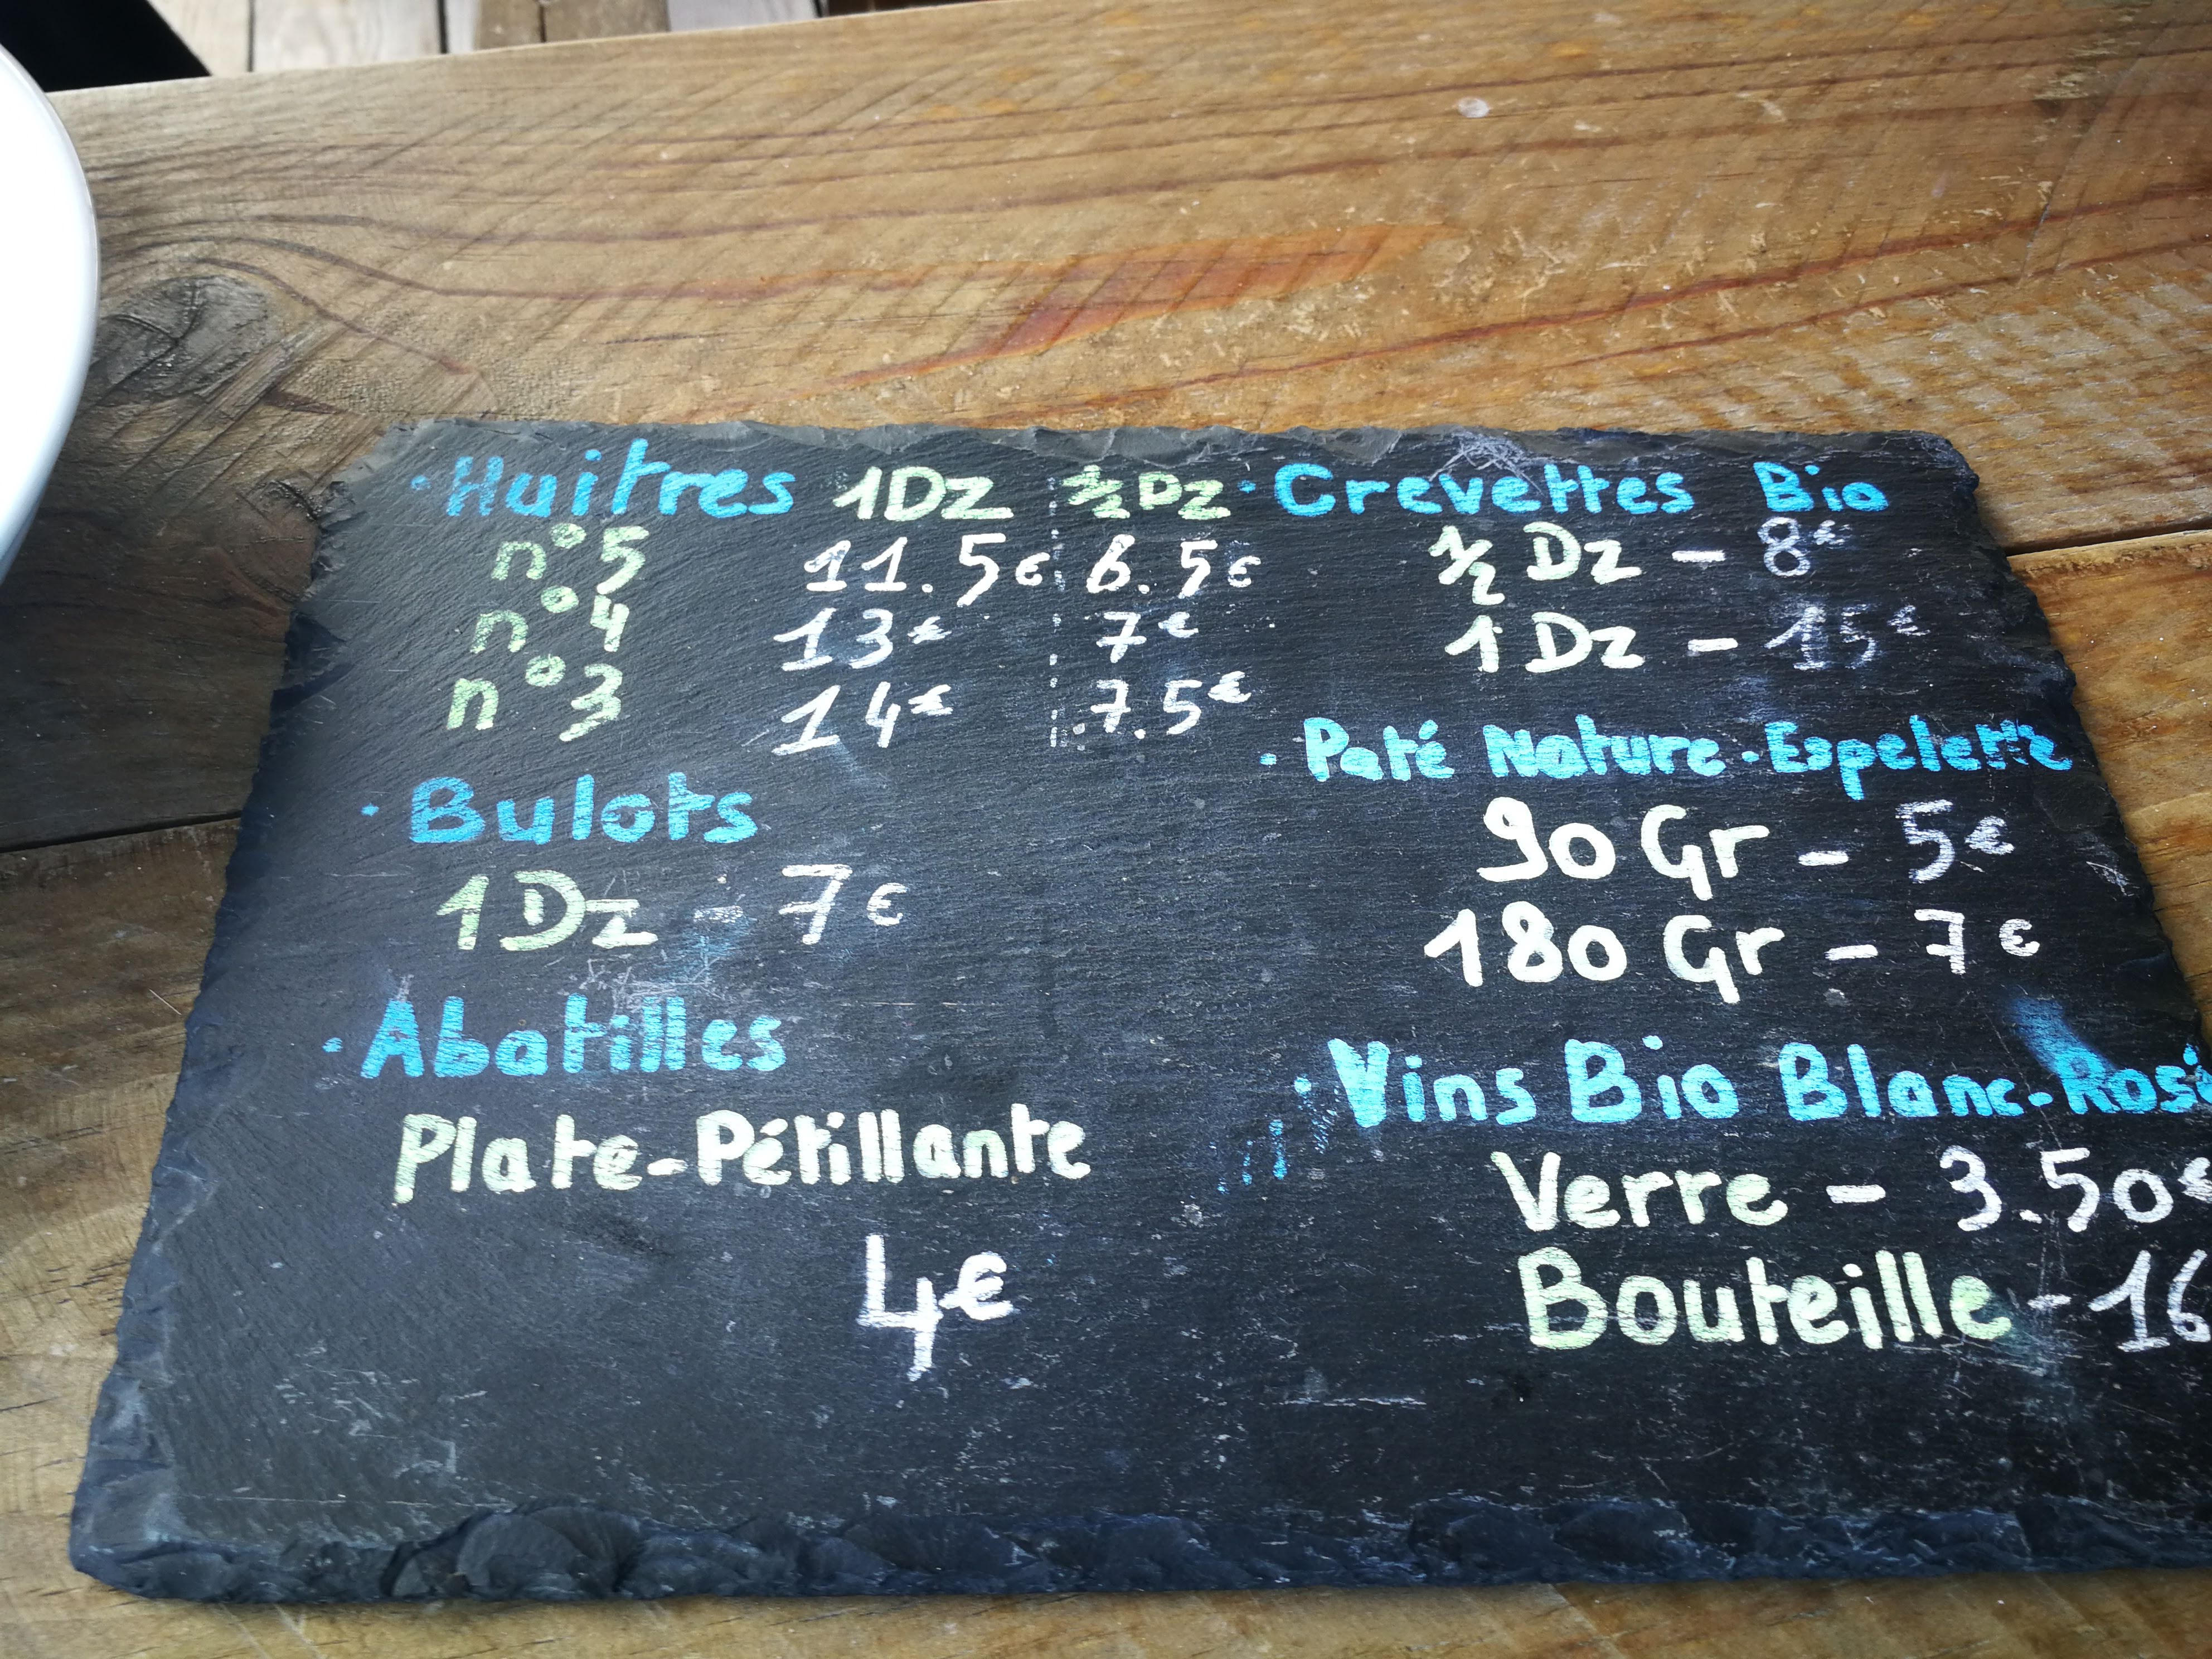 · Huitres 1Dz ½Dz
n°5 11.5€ 6.5€
n°4 13€ 7€
n°3 14€ 7.5€
· Bulots
1Dz - 7€
· Abatilles
Plate-Pétillante
4€
· Crevettes Bio
½ Dz - 8€
1 Dz - 15€
· Paté Nature-Espelette
90 Gr - 5€
180 Gr - 7€
· Vins Bio Blanc-Rosé
Verre - 3.50€
Bouteille - 16